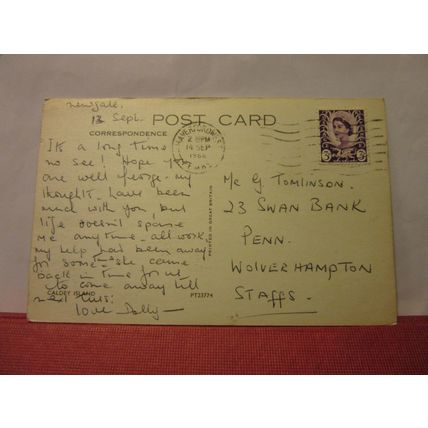 Newgale.
13 Sept.
POST CARD
CORRESPONDENCE
HAVERFORDWEST
2 PM
14 SEP
1966
It's a long time
no see! Hope you
are well George - my
thoughts have been
much with you, but
life doesn't spare
me any time - all work,
my help had been away
for some time she came
back in time for us
to come away till
next Tues!
love Dolly
CALDEY ISLAND
PT23774
PRINTED IN GREAT BRITAIN
3D
Mr G TOMLINSON.
23 SWAN BANK
PENN.
WOLVERHAMPTON
STAFFS.